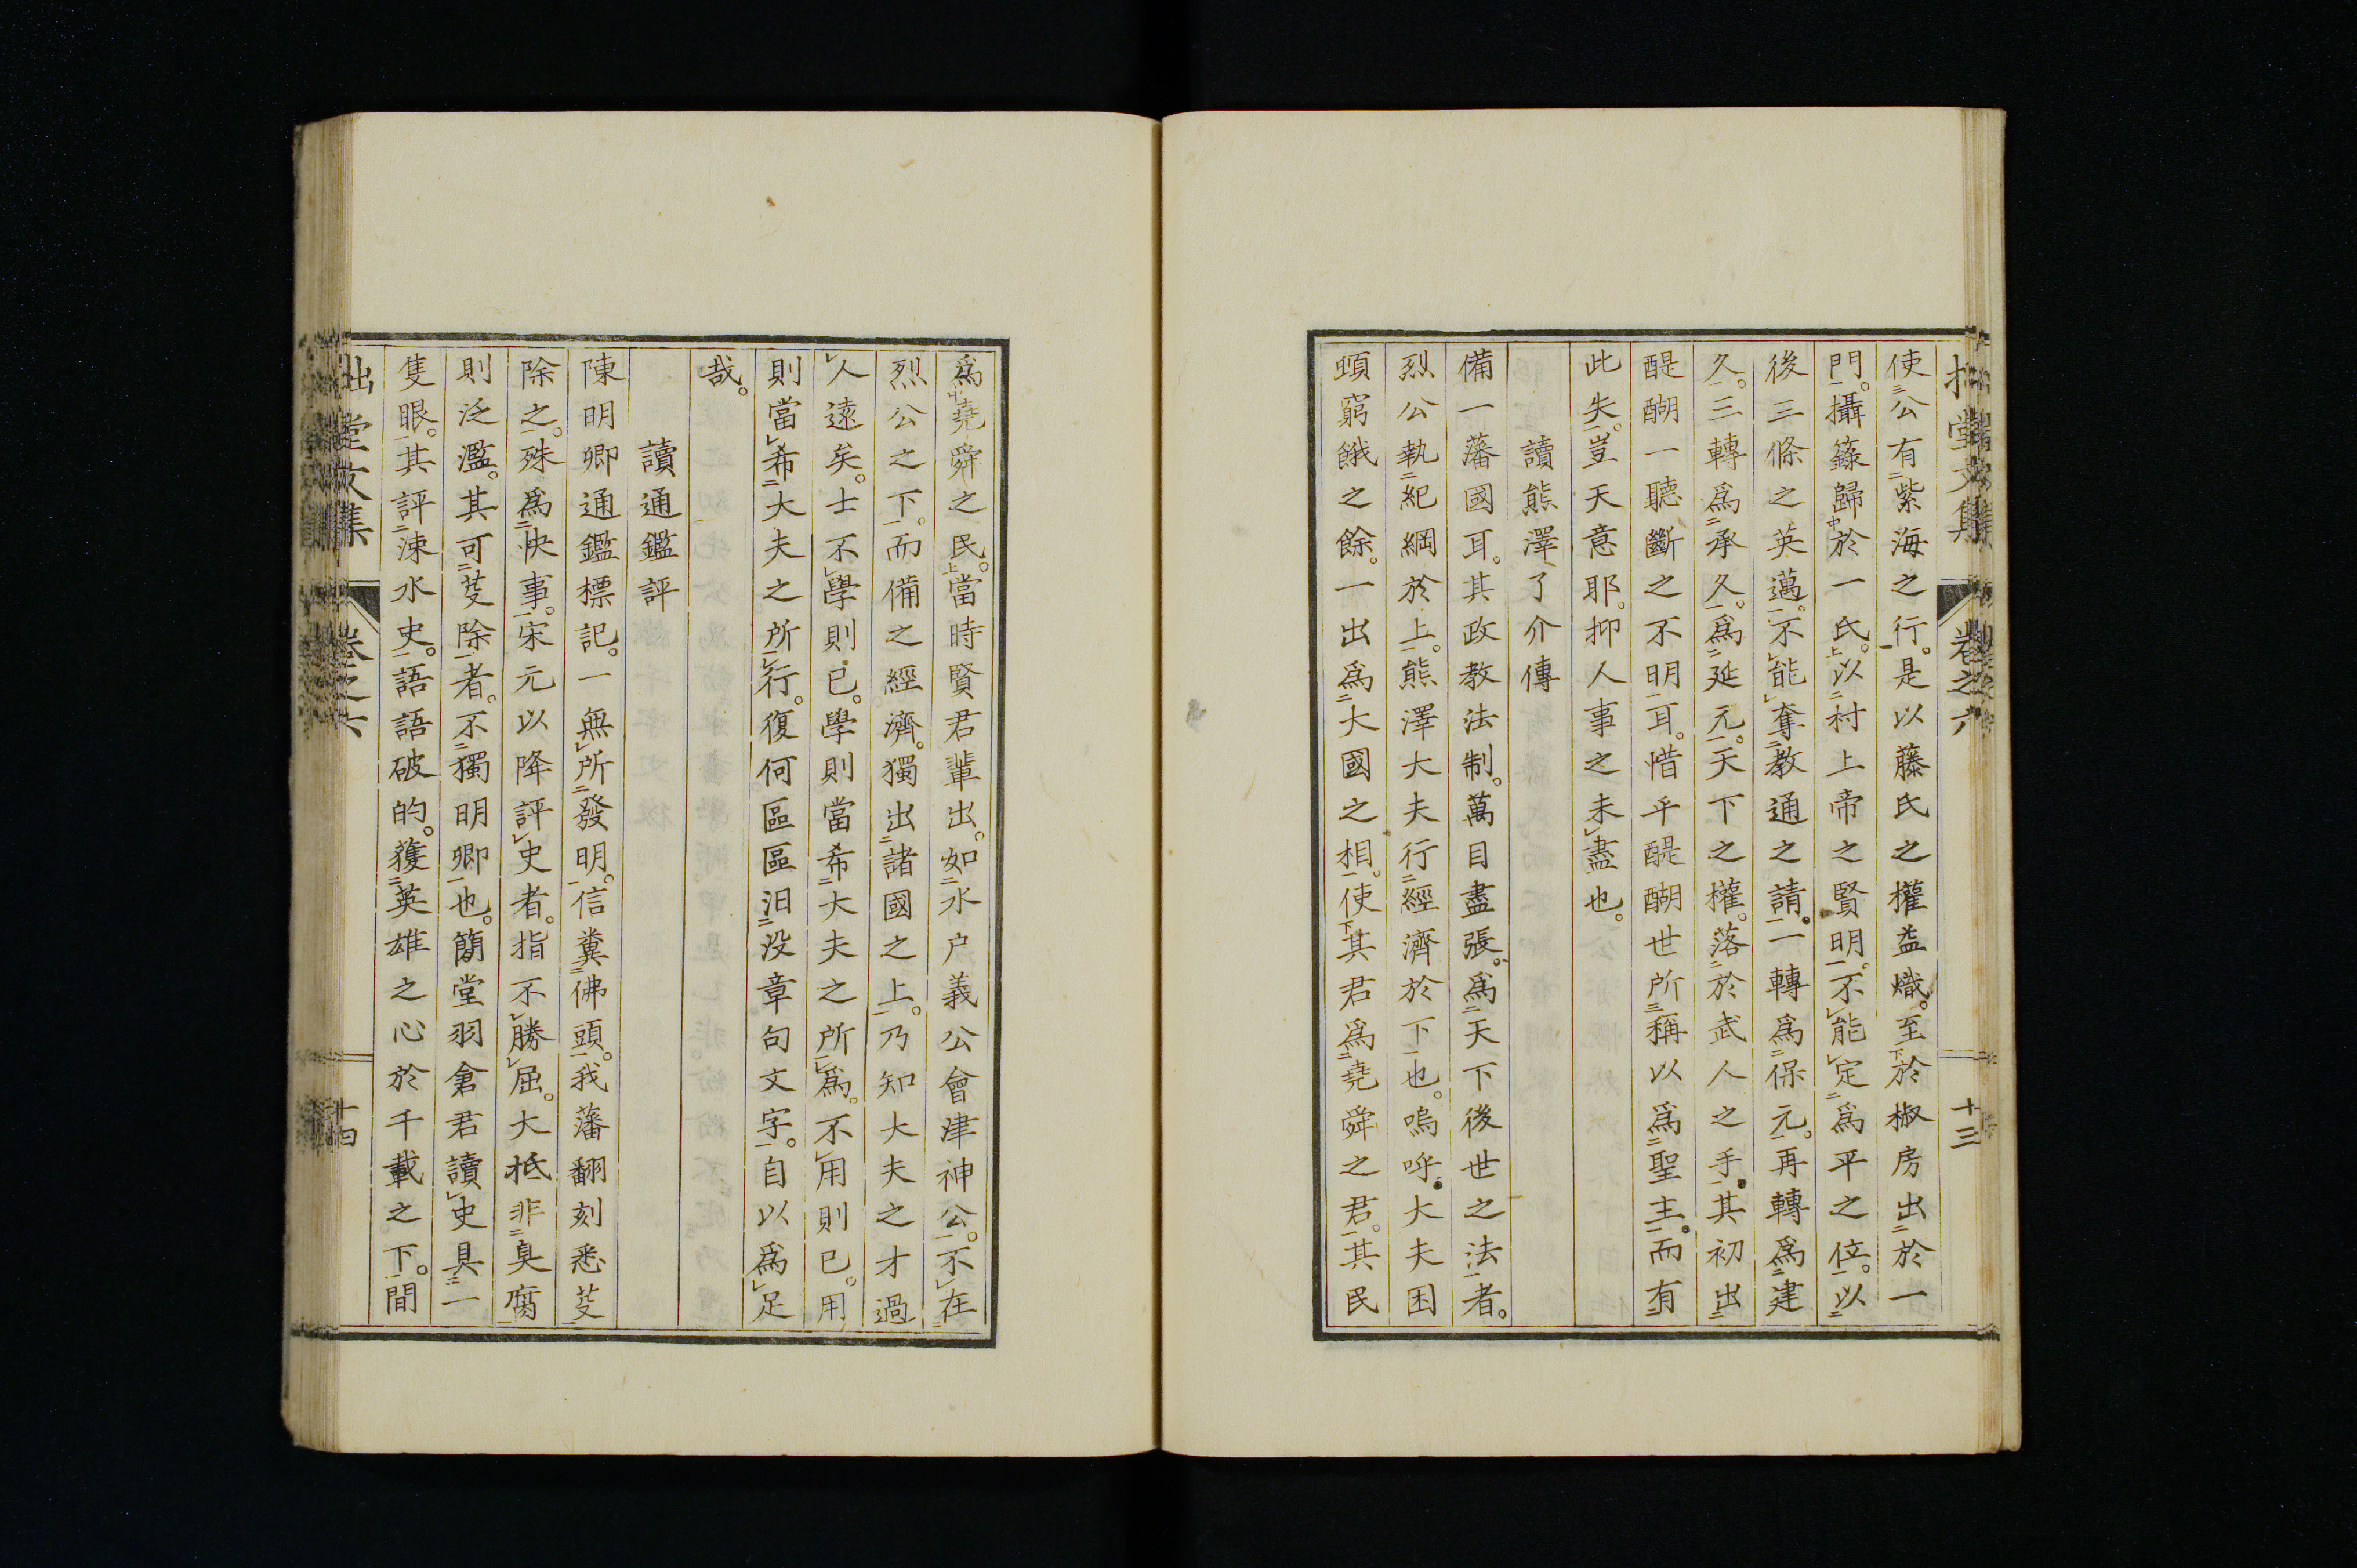 使公有紫海之行。是以藤氏之權益熾。至於椒房出於一
門。攝籙歸於一氏。以村上帝之賢明。不能定爲平之位。以
後三條之英邁。不能奪教通之請。一轉爲保元。再轉爲建
久。三轉爲承久。爲延元。天下之權。落於武人之手。其初出
醍醐一聽斷之不明耳。惜乎醍醐世所稱以爲聖主。而有
此失。豈天意耶。抑人事之未盡也。
讀熊澤了介傳
備一藩國耳。其政教法制。萬目盡張。爲天下後世之法者。
烈公執紀綱於上。熊澤大夫行經濟於下也。嗚呼。大夫困
頓窮餓之餘。一出爲大國之相。使其君爲堯舜之君。其民
爲堯舜之民。當時賢君輩出。如水戶義公會津神公。不在
烈公之下。而備之經濟。獨出諸國之上。乃知大夫之才過
人遠矣。士不學則已。學則當希大夫之所爲。不用則已。用
則當希大夫之所行。復何區區汨没章句文字。自以爲足
哉。
讀通鑑評
陳明卿通鑑標記。一無所發明。信糞佛頭。我藩翻刻悉芟
除之。殊爲快事。宋元以降評史者。指不勝屈。大抵非臭腐
則泛濫。其可芟除者。不獨明卿也。簡堂羽倉君讀史具一
隻眼。其評涑水史。語語破的。獲英雄之心於千載之下。間
拙堂文集 卷之六 十三
拙堂文集 卷之六 十四